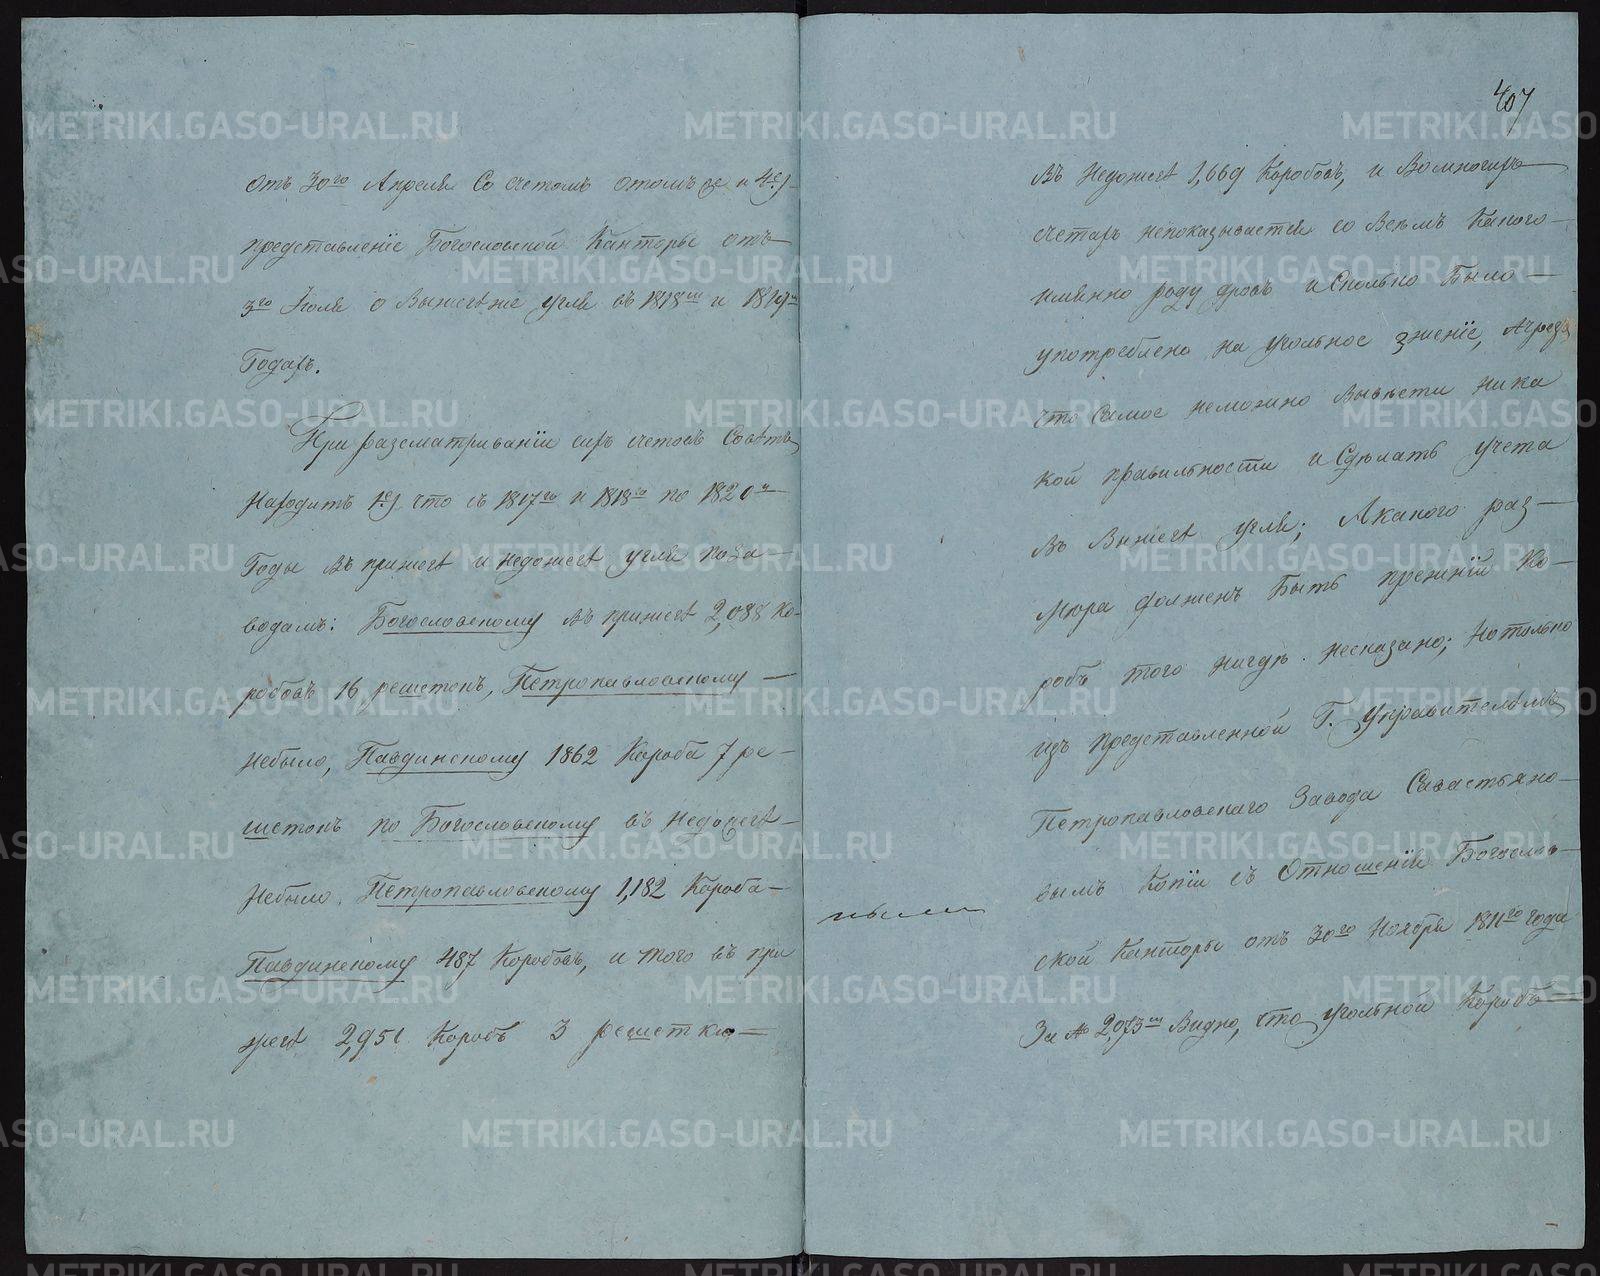 отъ 30го Апреля Со счетомъ отомъ же и 4е)
представленіе Богословской Канторы отъ
3го Іюля о Выжегѣ угля въ 1818м и 1819м
Годахъ.
При разсматриваніи сихъ счетовъ Советъ
Находитъ 1е) что съ 1817го и 1818го по 1820й
Годы въ прижегѣ и недожегѣ угля по за-
водамъ: Богословскому въ прижегѣ 2,088 Ко-
робовъ 16 решетокъ, Петропавловскому
Небыло, Павдинскому 1862 Короба 7 ре-
шетокъ по Богословскому въ Недожегѣ
Небыло, Петропавловскому 1,182 Короба
Павдинскому 487 Коробовъ, и того въ при
жегѣ 2,951 Коробъ 3 решетки
407
Въ Недожегѣ 1,669 Коробовъ, и Вомногихъ
счетахъ непоказывается со Всѣмъ Какого
имянно роду дровъ и Сколько Было
употреблено на угольное зженіе, Ачрезъ
сто Самое неможно Вывести Ника
кой правильности и Сдѣлать учета
Въ Выжегѣ угля; Акакого раз-
мѣра долженъ Быть прежній Ко-
робъ того нигдѣ несказано; Но только
изъ представленной Г. Управителемъ
Петропавловскаго Завода Савастьяно-
вымъ Копіи съ Отношенія Богослов-
ской Канторы отъ 30го Ноября 1811го года
За № 2,073м Видно, что угольной Коробъ